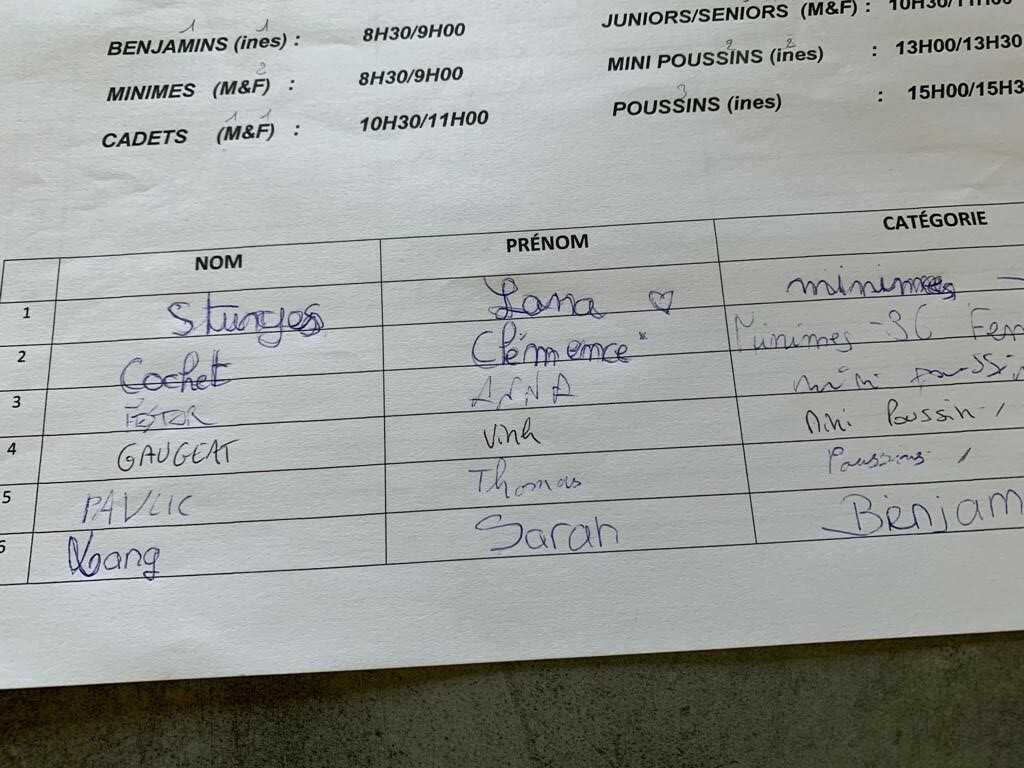 BENJAMINS (ines) : 8H30/9H00
1
MINIMES (M&F) : 8H30/9H00
2
CADETS (M&F) : 10H30/11H00
1 1
JUNIORS/SENIORS (M&F) : 10H30/11H00
MINI POUSSINS (ines) : 13H00/13H30
2 2
POUSSINS (ines) : 15H00/15H3
3
NOM PRÉNOM CATÉGORIE
1 Sturges Lana ♡ minimes
2 Cochet Clémence* Minimes -36 Fem
3 ANNA mini poussin
4 GAUGEAT Vinh Mini Poussin
5 PAVLIC Thomas Poussins
6 Sarah Benjam